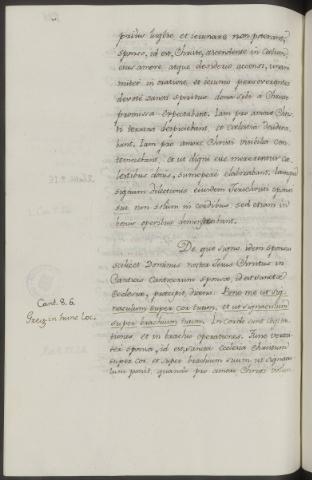 prius lugere et ieiunare non poterant,
sponso, id est, Christo, ascendente in cælum
eius amore atque desiderio accensi, unani-
miter in oratione, et ieiunio perseverantes
devotè sancti spiritus dona sibi à Christo
promissa expectabant. Iam pro amore Chri-
sti terrena despiciebant, et cœlestia deside-
bant. Iam pro amore Christi visibilia con-
temnebant, et ut digni eius mererentur cæ-
lestibus donis, summopere elaborabant, tamquam
signum dilectionis eiusdem
sui non solum in cordibus, sed etiam in
bonis operibus demonstrabant.
De quo signo idem sponsus
scilicet Dominus noster Iesus Christus in
Canticis Canticorum sponsæ, id est sanctæ
Ecclesiæ, præcipit, dicens: Pone me ut sig-
naculum super cor tuum, et ut signaculum
super brachium tuum. In corde sunt cogita-
tiones, et in brachio operationes. Tunc
sponsa, id est, sancta Ecclesia Christum
super cor et super brachium suum ut signacu-
lum ponit, quando pro amore Christi
Cant. 8. 6.
Greg. in hunc loc.